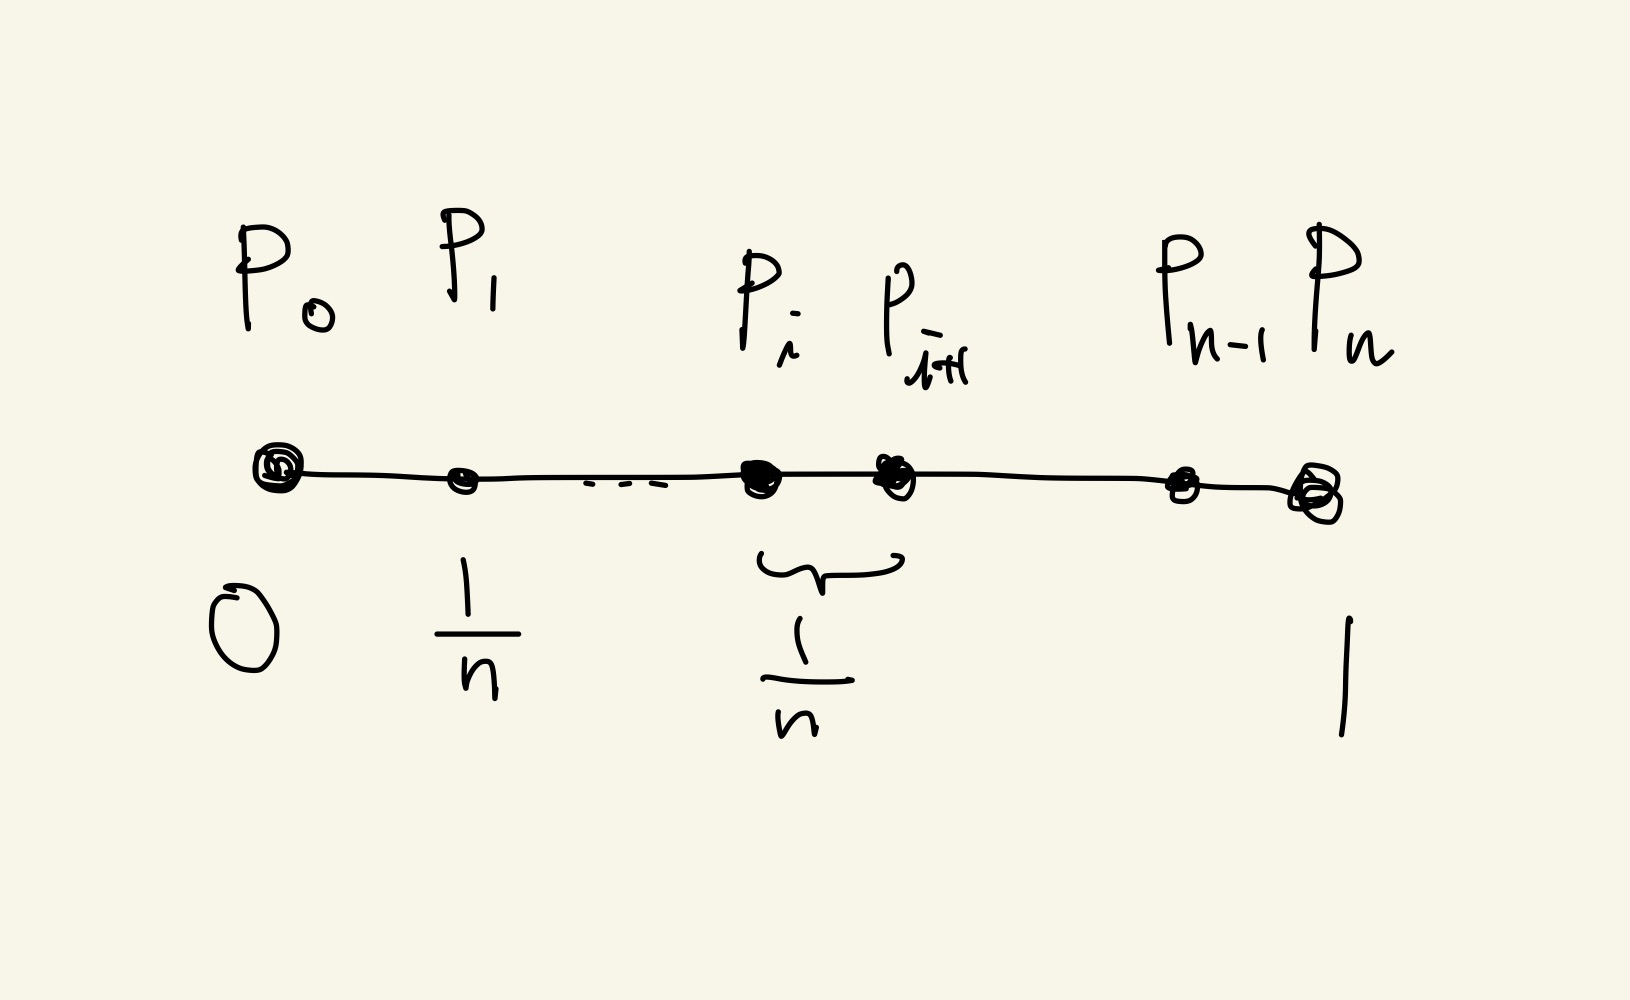 P₀ P₁ Pᵢ Pᵢ₊₁ Pₙ₋₁ Pₙ
0 1/n 1/n 1